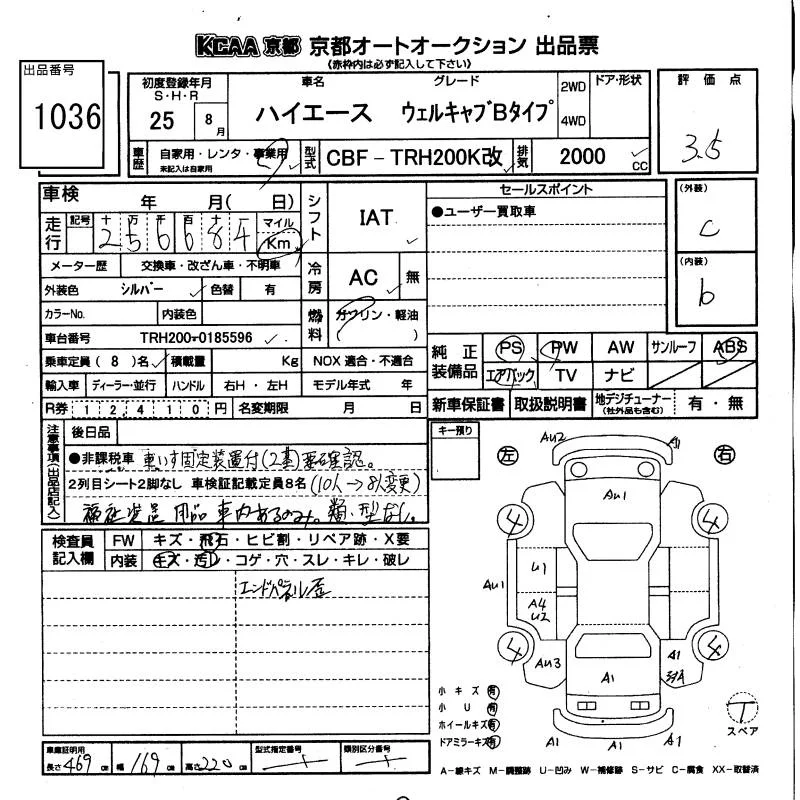 KCAA 京都 京都オートオークション 出品票
(赤枠内は必ず記入して下さい)
出品番号
1036
初度登録年月
S・H・R
25 8月
車名
グレード
ハイエース ウェルキャブBタイプ
2WD
4WD
ドア・形状
評価点
3.5
車歴
自家用・レンタ・事業用
未記入は自家用
型式
CBF-TRH200K改
排気
2000 CC
車検 年 月( 日)
シフト
IAT
セールスポイント
●ユーザー買取車
(外装)
C
(内装)
b
走行
記号 十 万 千 百 十 一 マイル
2 5 6 6 8 4 Km
メーター歴 交換車・改ざん車・不明車
冷房
AC 無
外装色 シルバー 色替 有
カラーNo. 内装色
燃料
ガソリン・軽油
( )
車台番号 TRH200-0185596
純正装備品
PS PW AW サンルーフ ABS
エアバック TV ナビ
乗車定員(8)名 積載量 Kg NOX適合・不適合
輸入車 ディーラー・並行 ハンドル 右H・左H モデル年式 年
新車保証書 取扱説明書 地デジチューナー 有・無
(社外品も含む)
R券 12410円 名変期限 月 日
注意事項(出品店記入)
後日品
●非課税車 車いす固定装置付(2基)要確認。
2列目シート2脚なし 車検証記載定員8名(10人→8人変更)
福祉装置 用品 車内あるのみ。類・型なし。
キー預り
左 右
検査員記入欄
FW キズ・飛石・ヒビ割・リペア跡・X要
内装 キズ・汚レ・コゲ・穴・スレ・キレ・破レ
エンドパネル歪
AU2 A1
AU1
4 4
U1
AU1
A4
U2
4 4
AU3 A1
A1
A1 A1 A1
小キズ 有
小U 有
ホイールキズ 有
ドアミラーキズ 有
T
スペア
車庫証明用
長さ 469cm 幅 169cm 高さ 220cm
型式指定番号
類別区分番号
A-線キズ M-調整跡 U-凹み W-補修跡 S-サビ C-腐食 XX-取替済